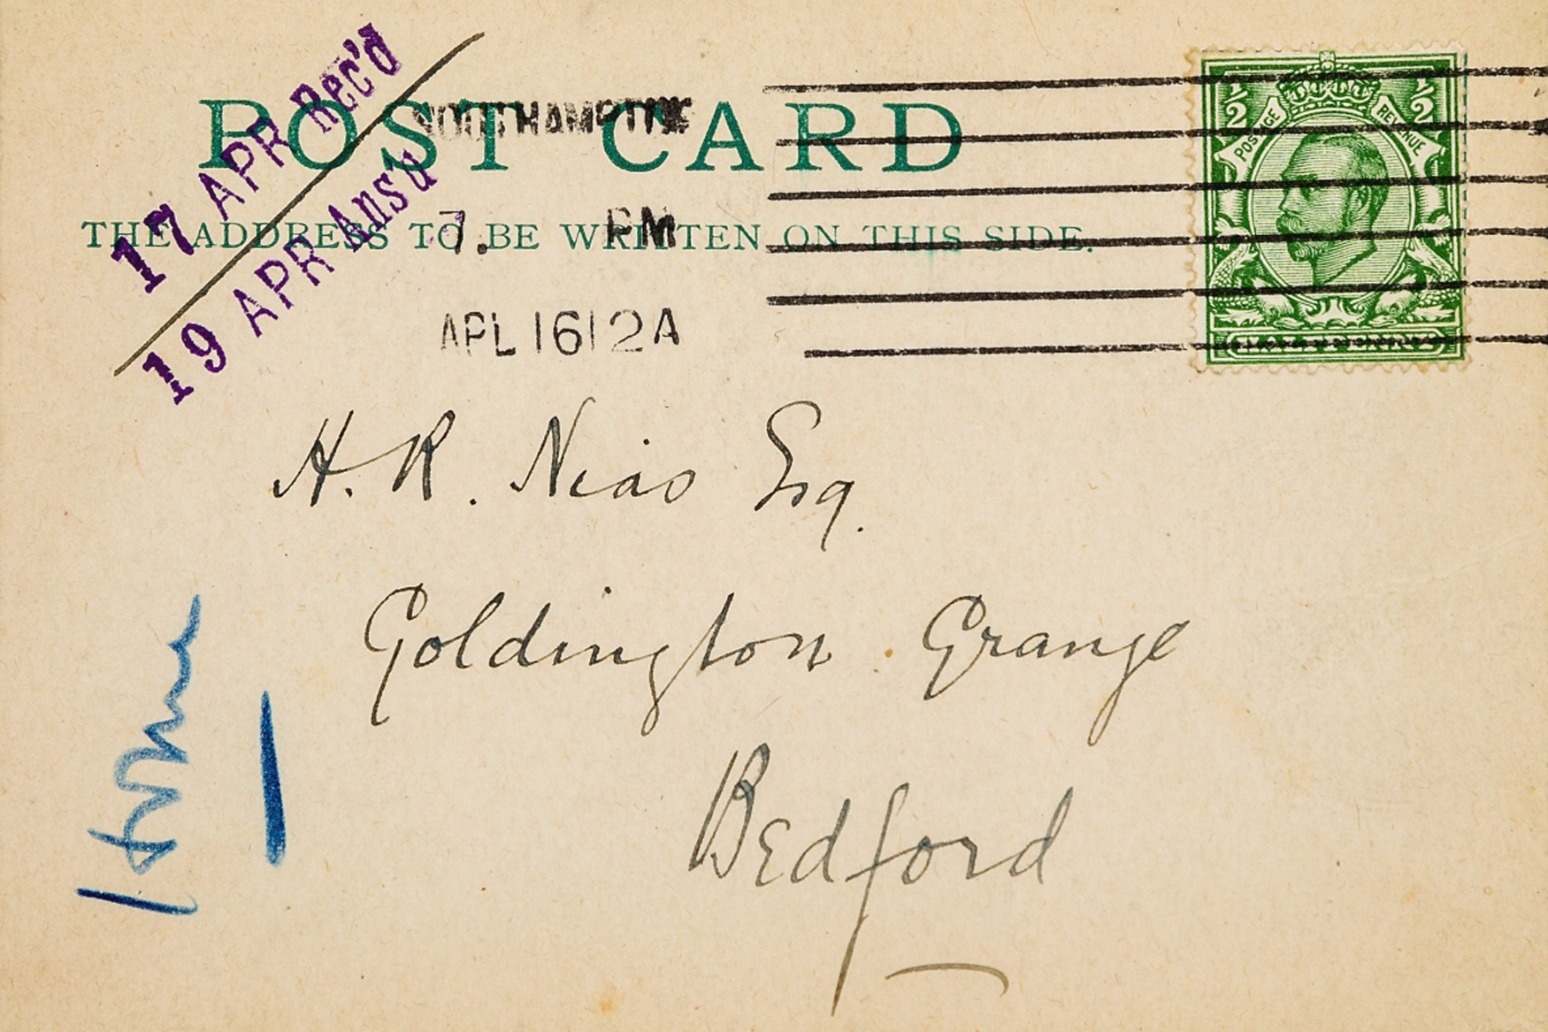 17 APR Rec'd
19 APR Ans'd
POST CARD
THE ADDRESS TO BE WRITTEN ON THIS SIDE.
SOUTHAMPTON
7. PM
APL 16 12A
½ ½
POSTAGE REVENUE
HALFPENNY
H. R. Nias Esq.
Goldington Grange
Bedford
Home